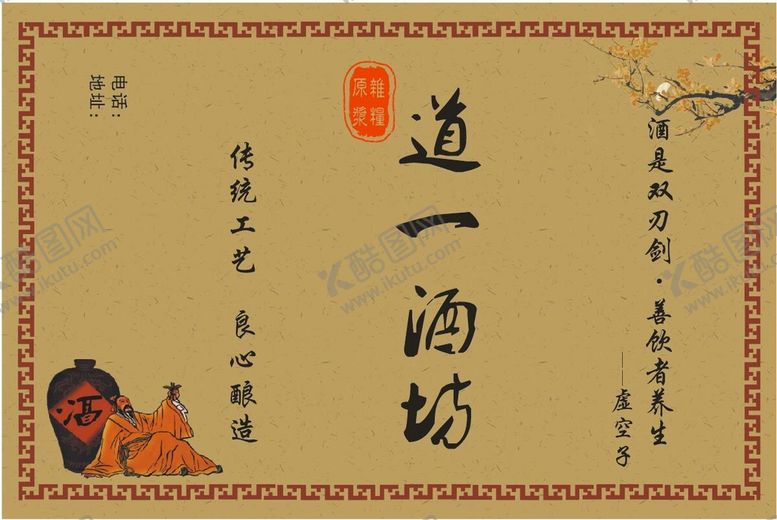 酒是双刃剑·善饮者养生
——虚空子
道一酒坊
雜糧
原漿
传统工艺 良心酿造
电话：
地址：
酒
酷图网
www.ikutu.com
酷图网
www.ikutu.com
酷图网
www.ikutu.com